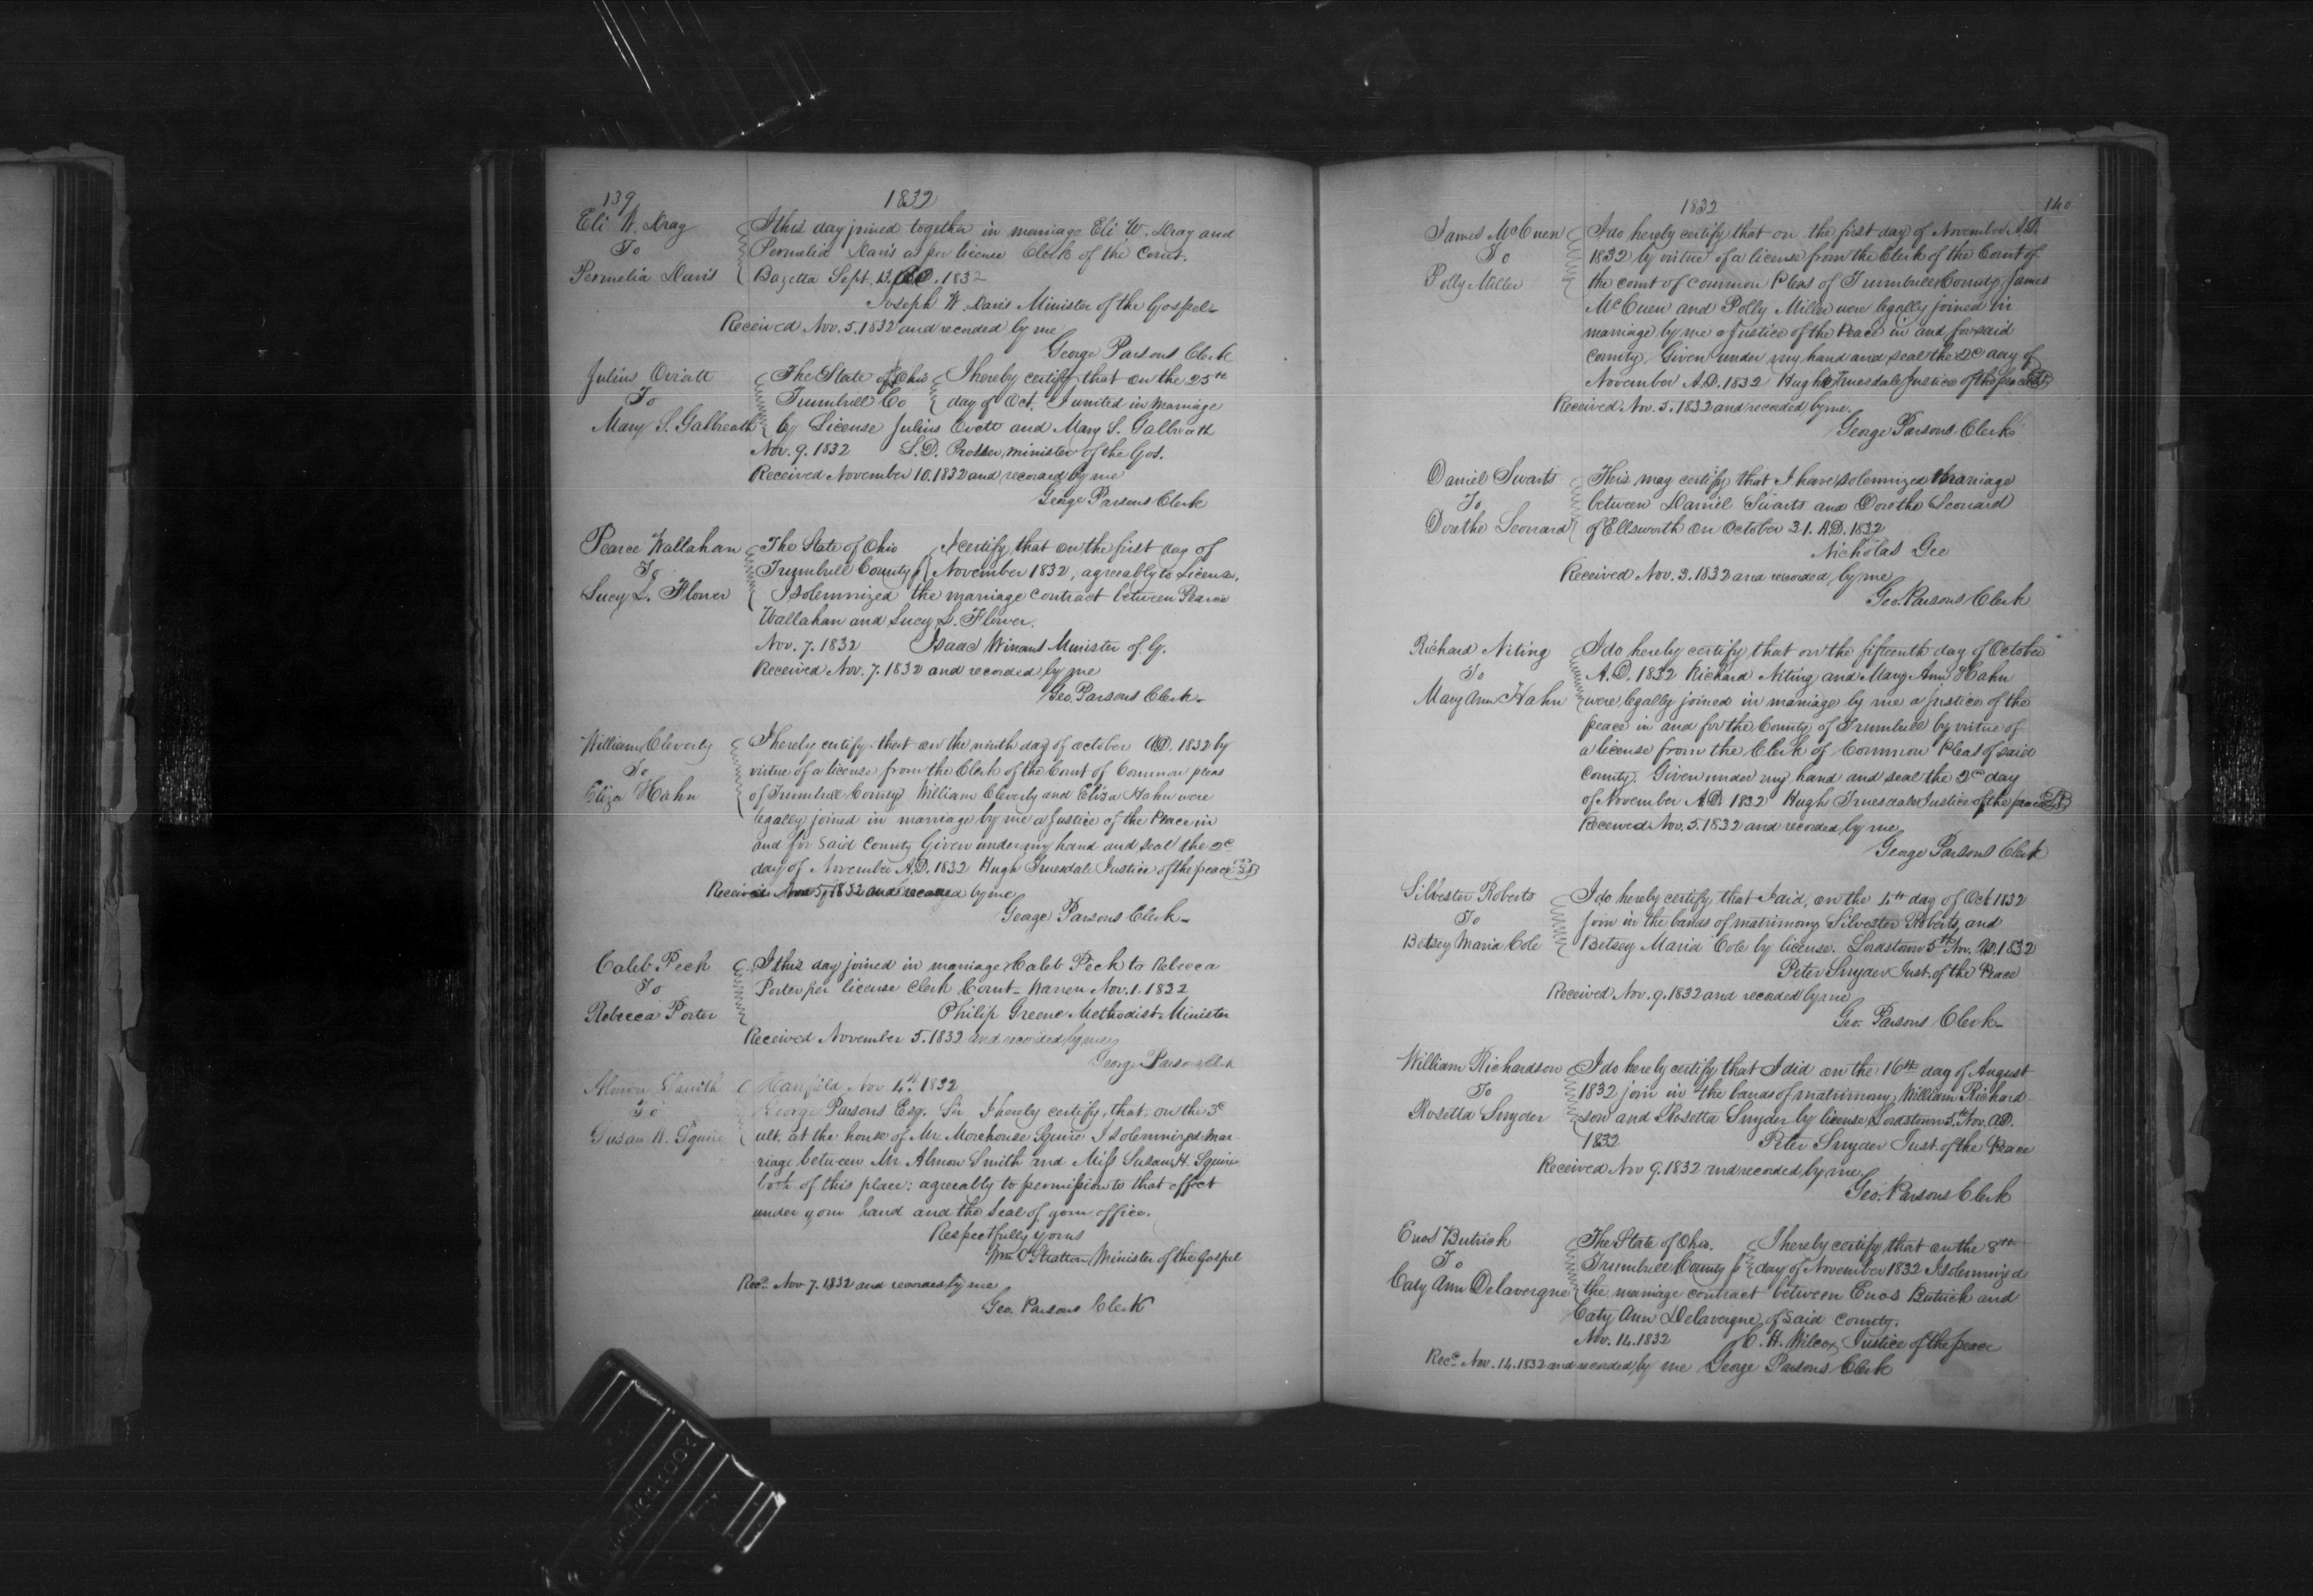 139
1832
Eli W. Dray
To
Permelia Davis
I this day joined together in marriage Eli W. Dray and
Permelia Davis as per license Clerk of the Court.
Bazetta Sept. 13. A.D. 1832
Joseph W. Davis Minister of the Gospel
Received Nov. 5. 1832 and recorded by me
George Parsons Clerk
Julius Oviatt
To
Mary S. Galbreath
The State of Ohio I hereby certify that on the 25th
Trumbull Co day of Oct. I united in marriage
by License Julius Oviatt and Mary S. Galbreath
Nov. 9. 1832 S.D. Prosser, minister of the Gos.
Received November 10. 1832 and recorded by me
George Parsons Clerk
Pearce Wallahan
To
Lucy L. Flower
The State of Ohio I certify, that on the first day of
Trumbull County November 1832, agreeably to License,
I solemnized the marriage contract between Pearce
Wallahan and Lucy L. Flower.
Nov. 7. 1832 Isaac Winans Minister of G.
Received Nov. 7. 1832 and recorded by me
Geo. Parsons Clerk
William Cleverly
To
Eliza Hahn
I hereby certify that on the ninth day of October A.D. 1832 by
virtue of a license from the Clerk of the Court of Common pleas
of Trumbull County William Cleverly and Eliza Hahn were
legally joined in marriage by me a Justice of the Peace in
and for said County Given under my hand and seal the 2d
day of November A.D. 1832 Hugh Truesdale Justice of the peace
Received Nov 5, 1832 and recorded by me
George Parsons Clerk
Caleb Peck
To
Rebecca Porter
I this day joined in marriage Caleb Peck to Rebecca
Porter per license Clerk Court Warren Nov. 1. 1832
Philip Greene Methodist Minister
Received November 5. 1832 and recorded by me
George Parsons Clerk
Almon Smith
To
Susan H. Squire
Canfield Nov 4th 1832
George Parsons Esq. Sir I hereby certify, that, on the 3d
ult. at the house of Mr Morehouse Squire I solemnized mar-
riage between Mr Almon Smith and Miss Susan H. Squire
both of this place; agreeably to permission to that effect
under your hand and the seal of your office.
Respectfully yours
Wm O Stratton Minister of the Gospel
Recd. Nov 7. 1832 and recorded by me
Geo. Parsons Clerk
1832
140
James McCuen
To
Polly Miller
I do hereby certify that on the first day of November A.D.
1832 by virtue of a license from the Clerk of the Court of
the court of common Pleas of Trumbull County, James
McCuen and Polly Miller were legally joined in
marriage by me a Justice of the Peace in and for said
County, Given under my hand and seal the 2d day of
November A.D. 1832 Hugh Truesdale Justice of the peace
Received Nov. 5. 1832 and recorded by me.
George Parsons Clerk
Daniel Swarts
To
Dorothe Leonard
This may certify that I have solemnized marriage
between Daniel Swarts and Dorothe Leonard
of Ellsworth on October 31. A.D. 1832
Nicholas Gee
Received Nov. 3. 1832 and recorded by me
Geo. Parsons Clerk
Richard Niting
To
Mary Ann Hahn
I do hereby certify that on the fifteenth day of October
A.D. 1832 Richard Niting and Mary Ann Hahn
were legally joined in marriage by me a justice of the
peace in and for the County of Trumbull by virtue of
a license from the Clerk of Common Pleas of said
County. Given under my hand and seal the 2d day
of November A.D. 1832 Hugh Truesdale Justice of the peace
Received Nov. 5. 1832 and recorded by me
George Parsons Clerk
Silvester Roberts
To
Betsey Maria Cole
I do hereby certify, that I did, on the 4th day of Oct 1832
join in the bands of matrimony Silvester Roberts, and
Betsey Maria Cole by license. Lordstown 5th Nov. A.D. 1832
Peter Snyder Just. of the Peace
Received Nov. 9. 1832 and recorded by me
Geo. Parsons Clerk
William Richardson
To
Rosetta Snyder
I do hereby certify that I did on the 16th day of August
1832 join in the bands of matrimony William Richard-
son and Rosetta Snyder by license, Lordstown 5th Nov. A.D.
1832 Peter Snyder Just. of the Peace
Received Nov 9. 1832 and recorded by me
Geo. Parsons Clerk
Enos Butrick
To
Caty Ann Delavergne
The State of Ohio. I hereby certify, that on the 8th
Trumbull County day of November 1832 I solemnized
the marriage contract between Enos Butrick and
Caty Ann Delavergne, of said County.
Nov. 14. 1832 C. H. Wilcox Justice of the peace
Recd. Nov. 14. 1832 and recorded by me George Parsons Clerk